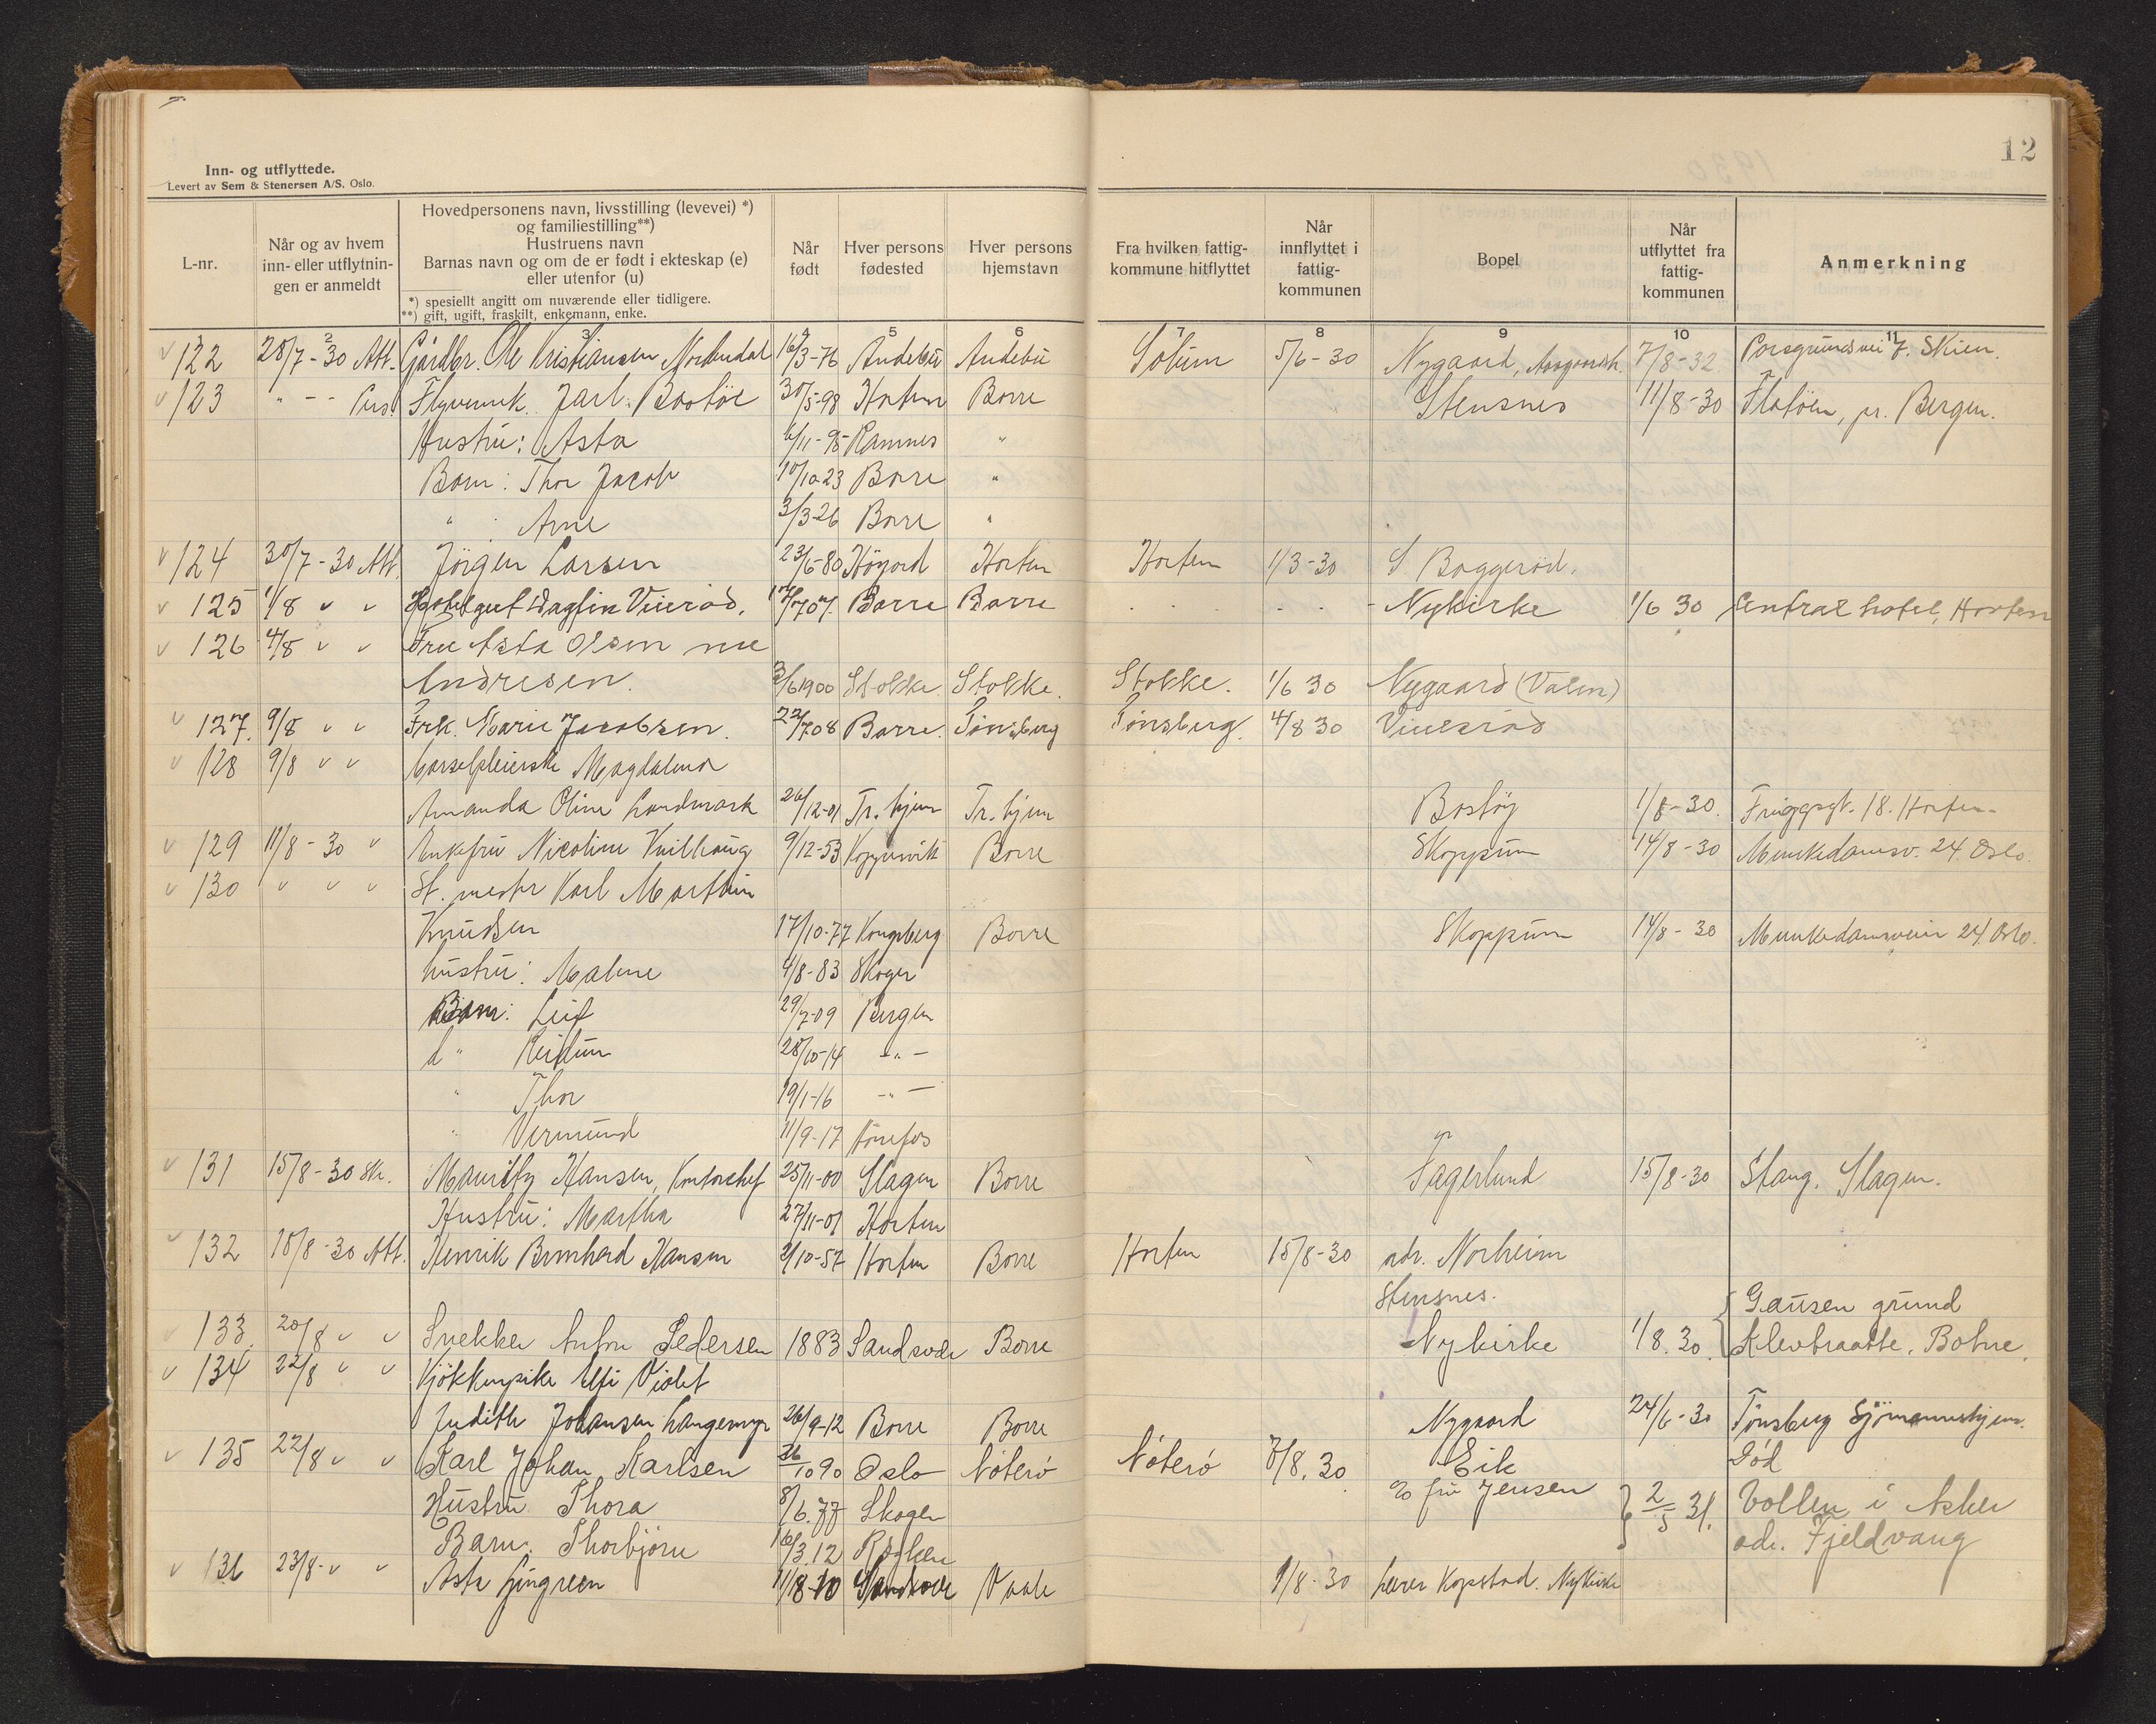 12
Inn- og utflyttede.
Levert av Sem & Stenersen A/S. Oslo.
L-nr.
Når og av hvem inn- eller utflytningen er anmeldt
Hovedpersonens navn, livsstilling (levevei) *)
og familiestilling**)
Hustruens navn
Barnas navn og om de er født i ekteskap (e)
eller utenfor (u)
*) spesiellt angitt om nuværende eller tidligere.
**) gift, ugift, fraskilt, enkemann, enke.
Når født
Hver persons fødested
Hver persons hjemstavn
Fra hvilken fattigkommune hitflyttet
Når innflyttet i fattigkommunen
Bopel
Når utflyttet fra fattigkommunen
Anmerkning
2 3 5 6 7 8 9 10 11
122 28/7-30 Att. Gårdbr. Ole Kristiansen 16/3-76 Andebu Andebu Solum 5/6-30 Nygaard, 7/8-32 Porsgrundsvei 7. Skien.
123 " - - Jarl Bastöe 30/5-98 Horten Borre Stensnes 11/8-30 Flatöen, pr. Bergen.
Hustru: Asta 6/11-95 Ramnes "
Barn: Thor Jacob 10/10-23 Borre "
" Arne 3/3-26 Borre "
124 30/7-30 Att. Jörgen Larsen 23/6-80 Höyord Horten Horten 1/3-30 S. Baggeröd.
125 1/8 " " Hotelgut Dagfin Viuröd. 17/7 07. Borre Borre - Nykirke 1/6 30 Sentral hotel, Horten
126 4/8 " " Fru Asta Olsen nee
Andresen. 3/6 1900 Stokke Stokke. Stokke. 1/6 30 Nygaard (Valen)
127. 9/8 " " Frk. Marie Jacobsen. 22/7 08 Borre. Tönsberg Tönsberg. 4/8 30 Viulsröd
128 9/8 " " Barselpleierske Magdalena
Amanda Oline Landmark 26/12-01 Tr.hjem Tr.hjem Bastöy 1/8-30. Friggsgt. 18. Horten.
129 11/8-30 " Enkefru Nicoline 9/12-53 Koppervik Borre Skoppum 14/8-30 Munkedamsv. 24 Oslo.
130 " " " St. mester Karl Marthin
Knudsen 17/10-77 Kongsberg Borre Skoppum 14/8-30 Munkedamsveien 24. Oslo.
hustru: Malene 4/8-83 Skoger
Barn: Leif 29/7-09 Bergen
d " Reidun 28/10-14 -"-
" Thor 19/1-16 -"-
" Vermund 11/9-17 Hönefos
131 15/8-30 Sk. Mauritz Hansen, Kontorchef 25/11-00 Slagen Borre Fagerlund 15/8-30 Stang. Slagen.
Hustru: Martha 27/11-01 Horten
132 18/8-30 Att. Henrik Bernhard Hansen 2/10-57 Horten Borre Horten 15/8-30 adr. Norheim
Stensnes.
133 20/8 " " Snekker Anton Pedersen 1883 Sandsvær Borre Nykirke 1/8. 30. { Gausen grund
Klevbraatte. Botne.
134 22/8 " " Kjökkenpike Elfi Violet
Judith Johansen Langemyr 26/9-12 Borre Borre Nygaard 24/6-30 Tönsberg Sjömannshjem.
135 22/8 " " Karl Johan Karlsen 26/10 90 Oslo Nöterö Nöterö 7/8. 30. Eik Död
Hustru Thora 8/6. 77 Skoger c/o fru Jensen } 2/5 31. Vollen i Asker
Barn. Thorbjörn 16/3. 12 Röyken adr. Fjeldvang
136 23/8 - " " Asta Ljungreen 11/8-10 Sandsvær Vaale 1/8-30 lærer Kopstad. Nykirke